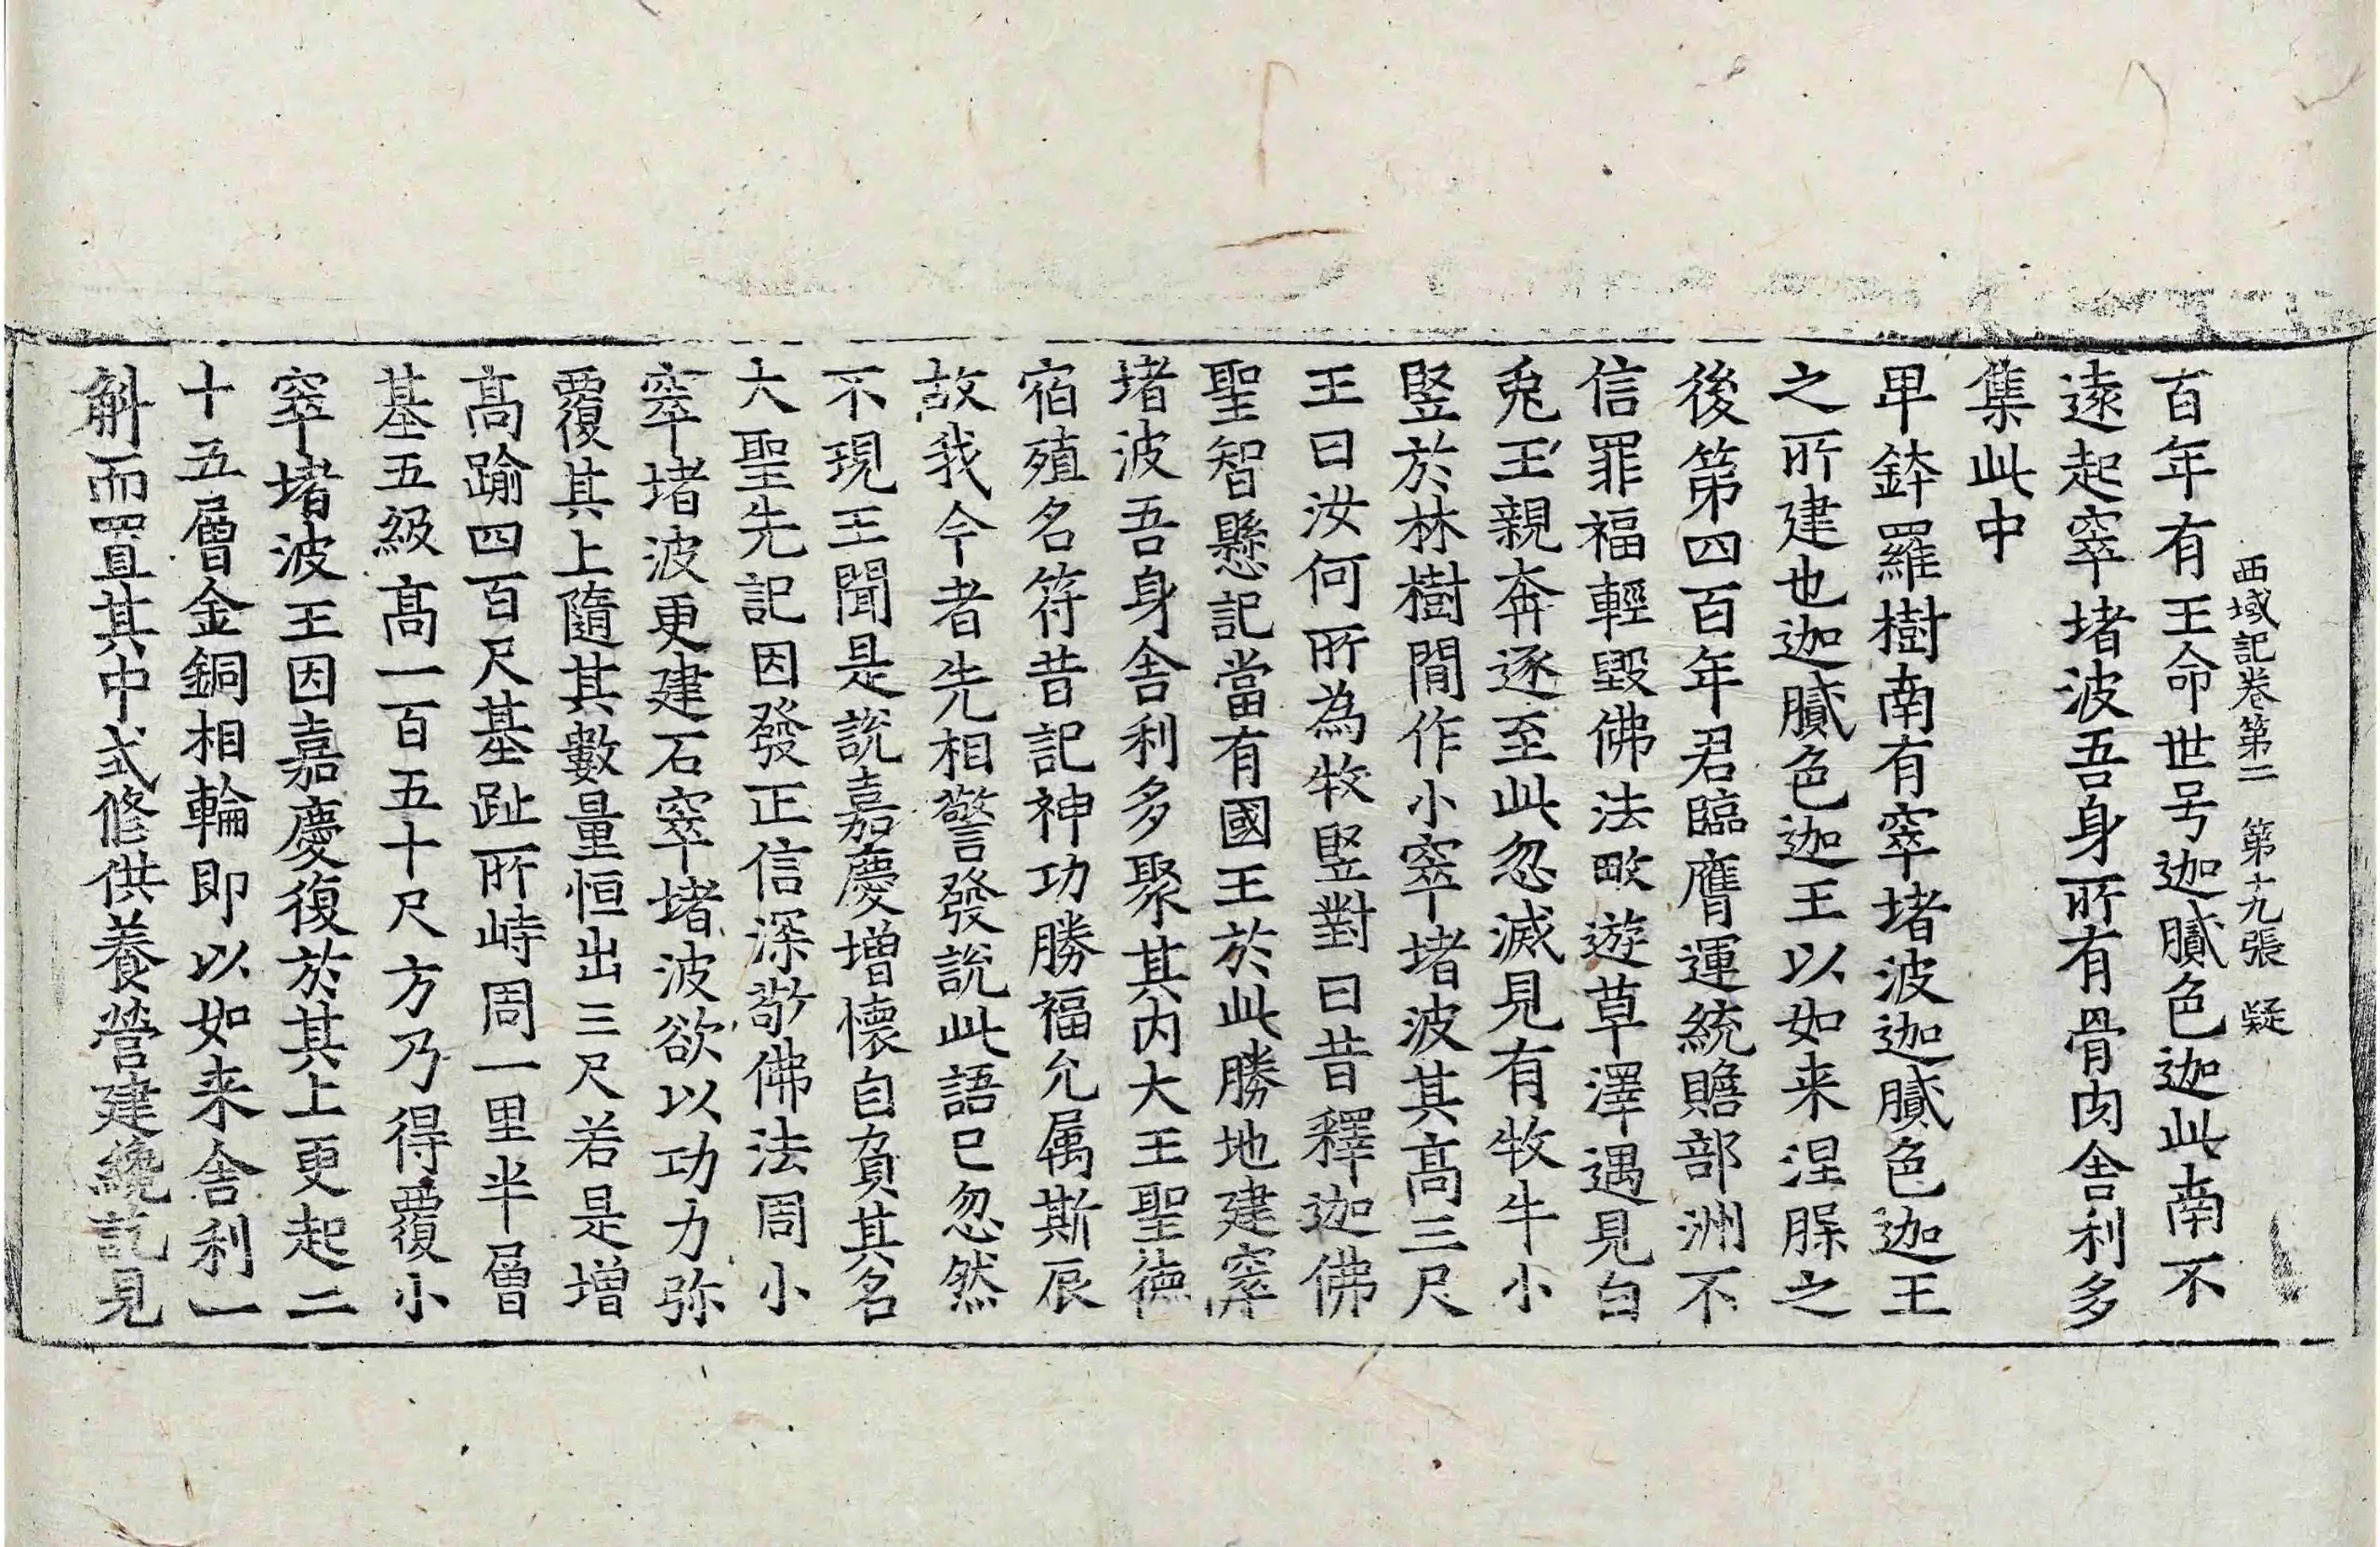 西域記卷第二 第十九張 疑
百年有王命世号迦膩色迦此南不
遠起窣堵波吾身所有骨肉舍利多
集此中
卑鉢羅樹南有窣堵波迦膩色迦王
之所建也迦膩色迦王以如来涅槃之
後第四百年君臨膺運統贍部洲不
信罪福輕毀佛法畋遊草澤遇見白
兎王親奔逐至此忽滅見有牧牛小
竪於林樹閒作小窣堵波其髙三尺
王曰汝何所為牧竪對曰昔釋迦佛
聖智懸記當有國王於此勝地建窣
堵波吾身舍利多聚其内大王聖德
宿殖名符昔記神功勝福允属斯辰
故我今者先相警發說此語已忽然
不現王聞是說嘉慶增懷自負其名
大聖先記因發正信深敬佛法周小
窣堵波更建石窣堵波欲以功力弥
覆其上隨其數量恒出三尺若是增
髙踰四百尺基趾所峙周一里半層
基五級髙一百五十尺方乃得覆小
窣堵波王因嘉慶復於其上更起二
十五層金銅相輪即以如来舍利一
斛而置其中式修供養營建纔訖見